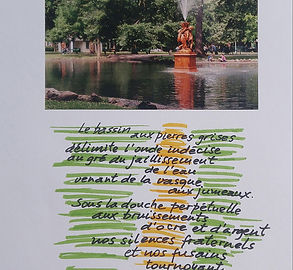 Le bassin
aux pierres grises
délimite l'onde indécise
au gré du jaillissement
de l'eau
venant de la vasque
aux jumeaux.
Sous la douche perpétuelle
aux bruissements
d'ocre et d'argent
nos silences fraternels
et nos fusains
tournoyant